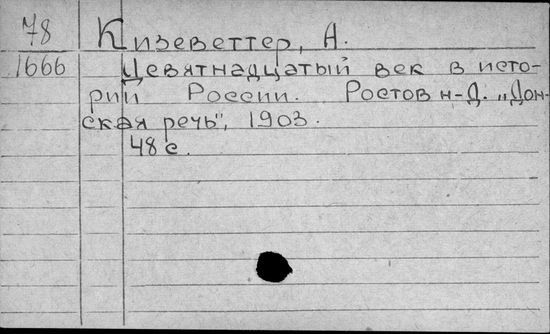 78 Кизеветтер, А.
1666 Девятнадцатый век в исто-
рии России. Ростов н-Д. „Дон-
ская речь", 1903.
48 с.